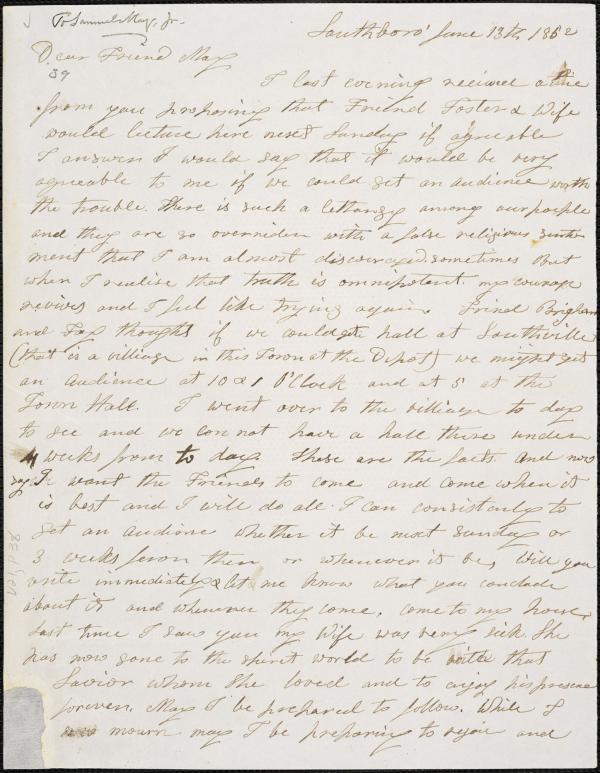 To Samuel May, Jr.
Southboro' June 13th 1862
Dear Friend May
39
I last evening received a line
from you proposing that Friend Foster & Wife
would lecture here next Sunday if agreeable
I answer I would say that it would be very
agreeable to me if we could get an audience worth
the trouble. there is such a lethargy among our people
and they are so overriden with a false religious senti-
ment that I am almost discouraged sometimes But
when I realise that truth is omnipotent my courage
revives and I feel like trying again. Frind Brigham
and Fay thought if we could get a hall at Southville
(that is a villiage in this Town at the Depot) we might get
an audience at 10 & 1 O'Clock and at 5 at the
Town Hall. I went over to the villiage to day
to see and we can not have a hall there under
4 weeks from to day these are the facts and now
say I want the Friends to come and come when it
is best and I will do all I can consistanly to
get an audience whether it be next Sunday or
3 weeks from then or whenever it be, Will you
write immediately & let me know what you conclude
about it and whenever they come, come to my house,
last time I saw you my Wife was very sick. She
has now gone to the spirit world to be with that
Savior whom she loved and to enjoy his presence
forever. May I be prepared to follow. While I
mourn may I be preparing to rejoice and